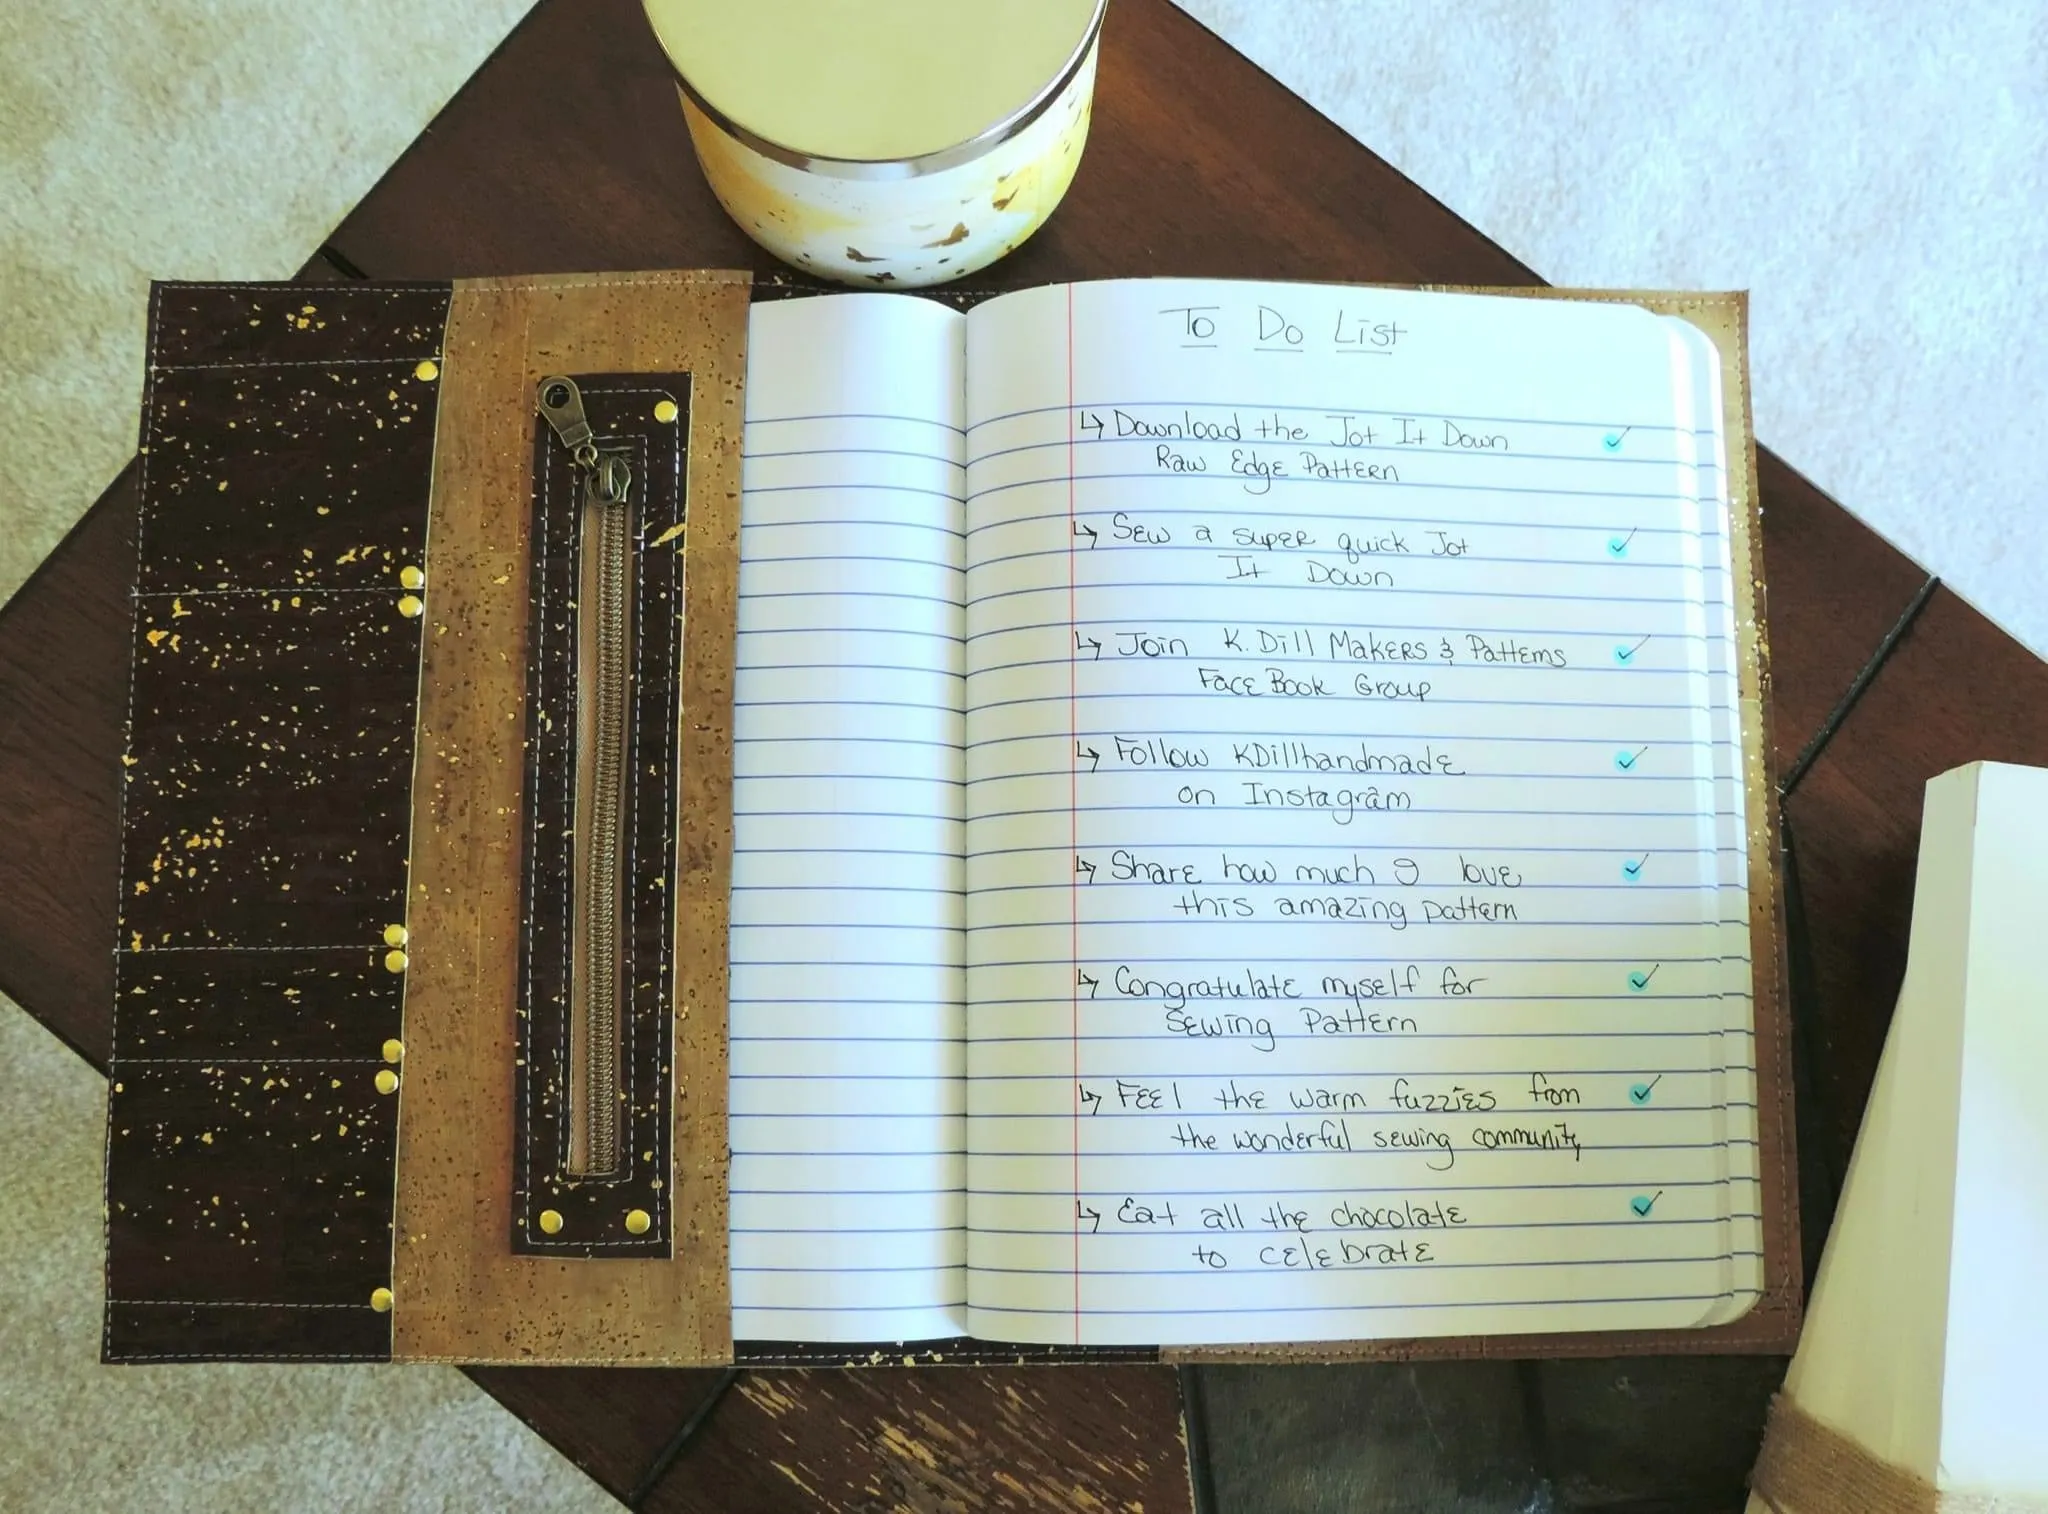 To Do List
↳ Download the Jot It Down
Raw Edge Pattern
↳ Sew a super quick Jot
It Down
↳ Join K. Dill Makers & Patterns
FaceBook Group
↳ Follow KDillhandmade
on Instagram
↳ Share how much I love
this amazing pattern
↳ Congratulate myself for
Sewing Pattern
↳ Feel the warm fuzzies from
the wonderful sewing community
↳ Eat all the chocolate
to celebrate